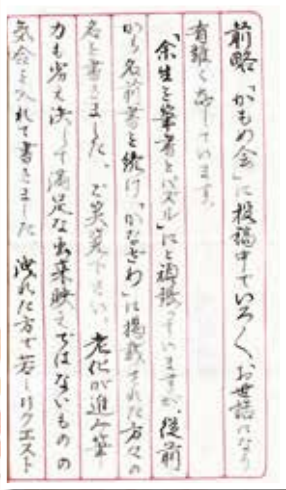 前略「かもめ会」に投稿中でいろ〱お世話になり
有難く存じています。
「余生を筆者とパズル」にと頑張っていますが、従前
から名前書を続け「かなざわ」に掲載された方々の
名を書きました、ご笑覧下さい 老化が進み筆
力も劣え決して満足な出来映えではないものの
気合を入れて書きました 洩れた方で若しリクエスト